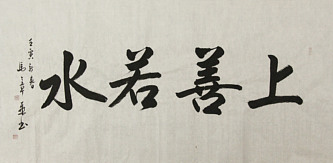 上善若水
壬寅初春